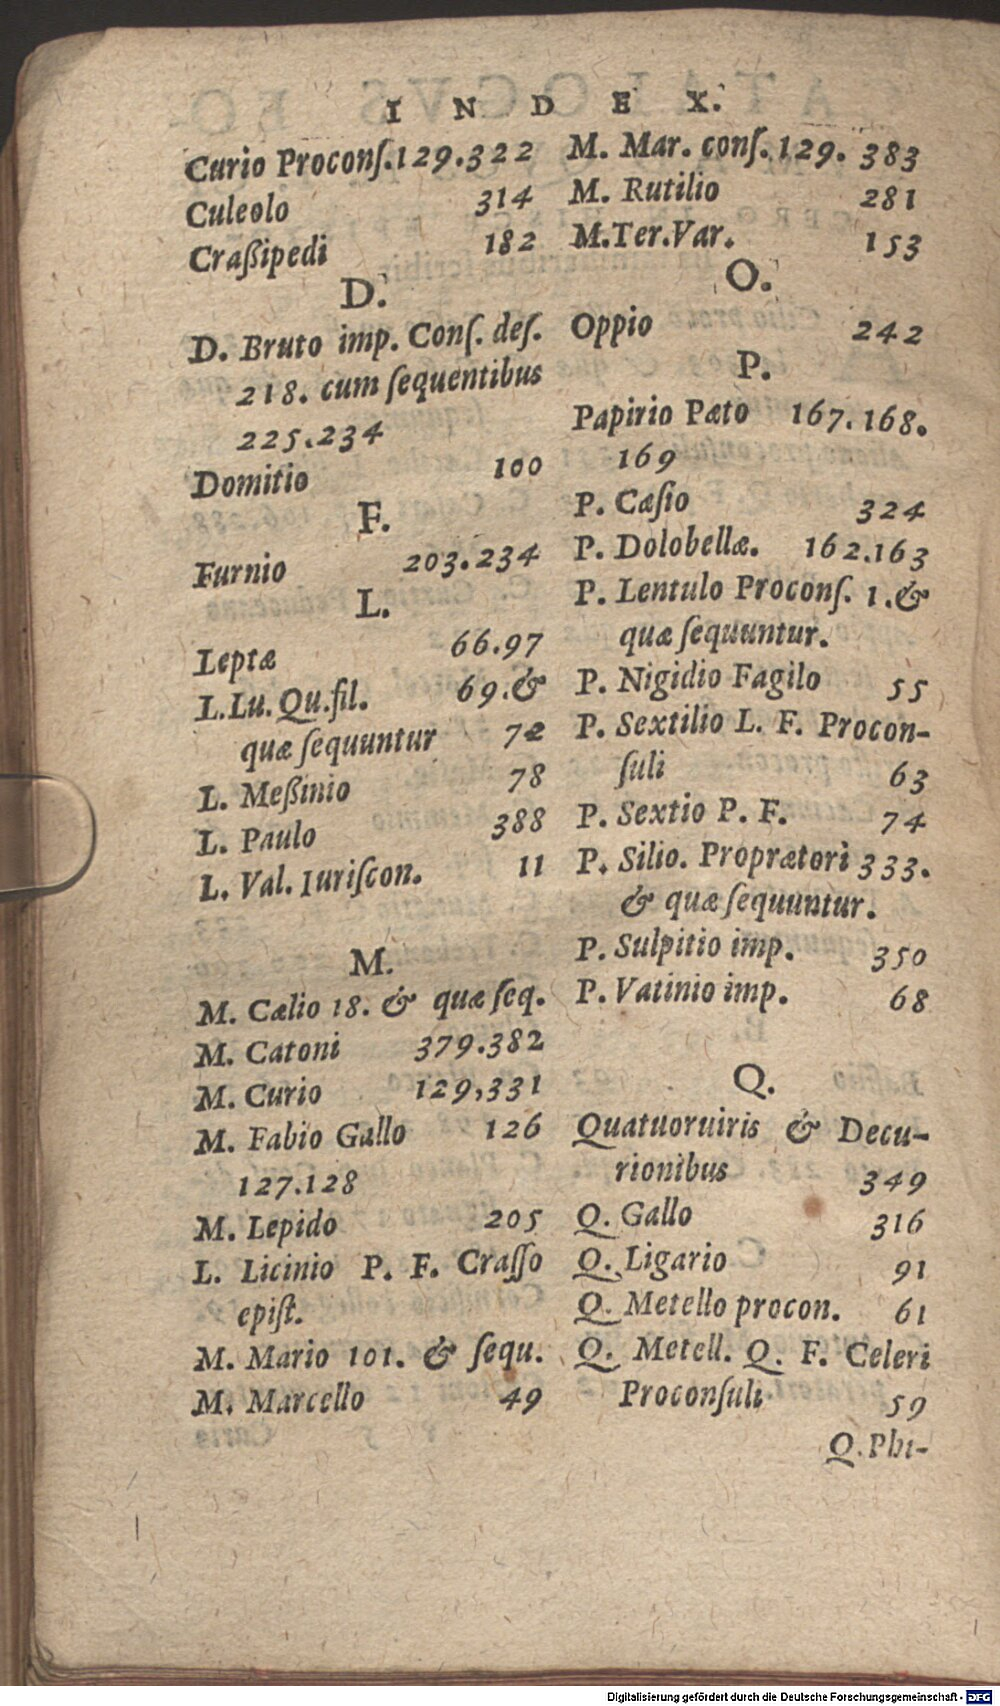 INDEX.
Curio Proconſ.129.322
Culeolo 314
Craßipedi 182
D.
D. Bruto imp. Conſ. deſ.
218. cum ſequentibus
225.234
Domitio 100
F.
Furnio 203.234
L.
Leptæ 66.97
L.Lu. Qu.fil. 69.&
quæ ſequuntur 72
L. Meßinio 78
L. Paulo 388
L. Val. Iuriſcon. 11
M.
M. Cælio 18. & quæ ſeq.
M. Catoni 379.382
M. Curio 129,331
M. Fabio Gallo 126
127.128
M. Lepido 205
L. Licinio P. F. Craſſo
epiſt.
M. Mario 101. & ſequ.
M. Marcello 49
M. Mar. conſ.129. 383
M. Rutilio 281
M.Ter.Var. 153
O.
Oppio 242
P.
Papirio Pæto 167.168.
169
P. Cæſio 324
P. Dolobellæ. 162.163
P. Lentulo Proconſ. 1.&
quæ ſequuntur.
P. Nigidio Fagilo 55
P. Sextilio L. F. Procon-
ſuli 63
P. Sextio P. F. 74
P. Silio. Proprætori 333.
& quæ ſequuntur.
P. Sulpitio imp. 350
P. Vatinio imp. 68
Q.
Quatuoruiris & Decu-
rionibus 349
Q. Gallo 316
Q. Ligario 91
Q. Metello procon. 61
Q. Metell. Q. F. Celeri
Proconſuli 59
Q.Phi-
Digitalisierung gefördert durch die Deutsche Forschungsgemeinschaft - DFG